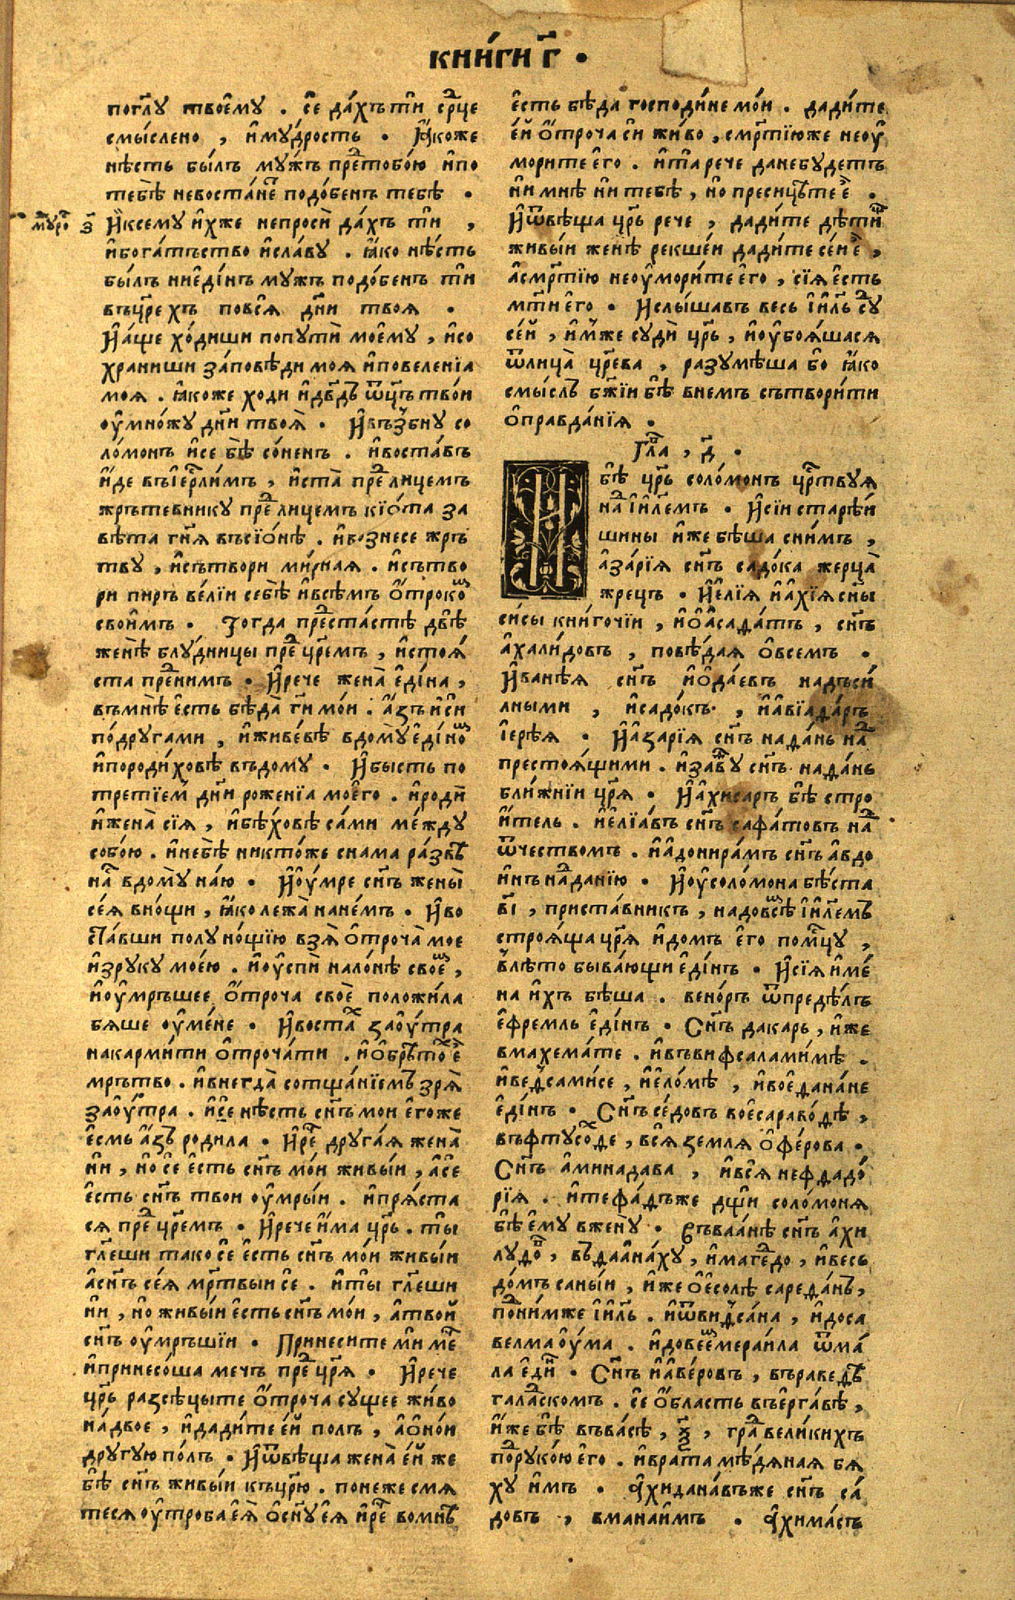 КНИ́ГИ Г҃ .
погл҃у твоѐму . сѐ да́хъти ср҃це
смы́слено , и҆му́дрость . Ꙗ҆́коже
нѣ́сть бы́лъ му́жъ пре҆тобо́ю и҆по
тебѣ̀ невоста́не подо́бенъ тебѣ̀ .
мѹро з҃
И҆ксему и҆́хже непросѝ да́хъ ти ,
и҆бога́тьство и҆сла́ву . ꙗ҆́ко нѣ́сть
бы́лъ ниѐди́нъ мужъ подо́бенъ ти
въцр҃ехъ повсѧ̀ дн҃и твоѧ̀ .
И҆а́ще хо́диши попутѝ моѐму , и҆со
храниши за́повѣди моѧ и҆повелѐнїа
моѧ . ꙗ҆́коже ходи и҆дв҃дъ ѿц҃ъ тво́и
оу҆мно́жу дн҃и твоѧ̀ . И҆възбну со
ло́монъ и҆се бѣ̀ со́ненъ . и҆воста́въ
и҆́де въі҆ер҃лимъ , и҆ста̀ пре҆ лицемъ
жрътевнику пре҆ лицемъ кїѡ́та за
вѣ́та гн҃ѧ въсїѡ́нѣ . и҆вознесе жръ
тву , и҆сътвори ми́рнаѧ . и҆сътво
ри пиръ вѐлїи себѣ̀ и҆всѣ́мъ о҆́троко
свои҆мъ . Тогда пре҆ста́стѣ двѣ̀
женѣ̀ блу́дницы пре҆ цр҃емъ , и҆стоѧ́
ста пре҆нимъ . И҆рече жена̀ ѐди́на ,
въмнѣ̀ ѐсть бѣда̀ гн҃и мо́и . а҆́зъ и҆си
по́другами , и҆живѐвѣ вдому̀ ѐди́но
и҆породи́ховѣ въдому . И҆бысть по
третїемъ дн҃и роженїа моѐго . и҆роди
и҆жена̀ сїѧ , и҆бѣ́ховѣ са́ми ме́жду
собою . и҆небѣ̀ никто́же снама ра́звѣ
на вдому на́ю . И҆оу҆́мре сн҃ъ жены̀
сеѧ̀ вно́щи , ꙗ҆́ко лежа̀ нане́мъ . И҆во
ста́вши полу но́щїю взѧ̀ о҆́троча̀ мое
и҆зруку мое́ю . и҆оу҆спѝ нало́нѣ свое ,
и҆оу҆мръшее о҆́троча своѐ положи́ла
бѧше оу҆мѐне . И҆воста заоу҆́тра
накарми́ти о҆троча́ти . и҆о҆бръто ѐ
мръ́тво . и҆внегда̀ сотща́нїемъ зрѧ̀
заоу҆́тра . и҆се нѣсть сн҃ъ мои ѐгоже
ѐсмь а҆́зъ родила . И҆ре҆ друга́ѧ жена̀
ни , но се ѐсть сн҃ъ мо́и живы́и , а҆се
ѐсть сн҃ъ твои оу҆мры́и . и҆прѧ́ста
сѧ пре҆ цр҃емъ . И҆рече и҆́ма цр҃ь . ты
гл҃еши тако се ѐсть сн҃ъ мо́и живы́и
а҆сн҃ъ сеѧ̀ мр҃твыи се . и҆ты гл҃еши
ни , но живы́и ѐсть сн҃ъ мо́и , а҆твои
сн҃ъ оу҆мръшїи . Принесите ми ме
и҆принесоша мечъ пре҆ цр҃ѧ . И҆рече
цр҃ь разсѣцыте о҆́троча сущее жи́во
на́двое , и҆дади́те еи полъ , а҆о҆но́и
другую полъ . И҆ѿвѣща жена̀ ей же
бѣ̀ сн҃ъ живыи къцр҃ю . понеже смѧ
тесѧ оу҆троба ѐѧ̀ о҆сн҃у ѐѧ и҆ре҆ вомнѣ
ѐсть бѣ́да господи́не мо́и . дади́те
ѐй о҆́троча си жи́во , смр҃тїюже неоу҆
морите ѐго . и҆та рече данебудетъ
ни мнѣ ни тебѣ , но пресицѣте е .
И҆ѿвѣща цр҃ь рече , дади́те дѣти
живы́и женѣ̀ рекшѐи дади́те сѐи е ,
а҆смр҃тїю неоу҆мори́те ѐго , сїѧ ѐсть
мт҃и ѐго . И҆слы́шавъ весь і҆и҃ль су
се́й , и҆́мже судѝ цр҃ь , и҆оу҆боѧ́шасѧ
ѿлица̀ цр҃ева , разумѣша бо ꙗ҆́ко
смыслъ бж҃їи бѣ̀ внемъ сътвори́ти
о҆правда́нїѧ .
Гла , д҃ .
И бѣ̀ цр҃ь соло́монъ цр҃твуѧ
на і҆и҃лемъ . И҆сїи старѣ́и
шины и҆же бѣша сни́мъ ,
а҆за́рїѧ сн҃ъ садо́ка жерца̀
жрецъ . И҆ѐлїѧ и҆а҆хїѧ сн҃ы
си́сы книго́чїи , и҆о҆а҆сада́тъ , сн҃ъ
а҆хали́довъ , повѣ́даѧ о҆всемъ .
И҆ване́ѧ сн҃ъ и҆о҆да́евъ надъси́
лными , и҆садо́къ , и҆а҆вїада́ръ
і҆ерѣ́ѧ . И҆а҆зарїѧ сн҃ъ нада́нь на
престоѧ́щими . и҆завѹ сн҃ъ нада́нь
бли́жнїи цр҃ѧ . И҆а҆хисаръ бѣ̀ стро
и҆тель . и҆ѐлїа́въ сн҃ъ сафа́товъ на
ѿчествомъ . и҆а҆донира́мъ сн҃ъ а҆вдо
и҆нъ на҆да́нїю . И҆оу҆соло́мона бѣ́ста
в҃і , приста́вникъ , надовсѣ і҆и҃лемъ
строѧ́ща цр҃ѧ и҆домъ ѐго помцу ,
влѣто быва́ющи ѐди́нъ . И҆сїѧ и҆ме́
на и҆хъ бѣша . вено́ръ ѿпредѣ́лъ
ѐфремль ѐди́нъ . Сн҃ъ дакарь , и҆же
вмахема́те . и҆въвифсалами́мѣ .
и҆ведсами́се , и҆ѐло́мѣ , и҆воѐдана́не
ѐди́нъ . Сн҃ъ се́довъ воѐсараво́дѣ ,
въфтусоде , всѧ̀ землѧ о҆фе́рова .
Сн҃ъ а҆минадава , и҆всѧ̀ нефдадо́
рїѧ . и҆тефадъже дщи соло́монѧ
бѣ̀ ѐму вже́ну . Въваа́нѣ сн҃ъ а҆хи
лудо , въдаа҆на́ху , и҆маге́до , и҆весь
до́мъ саныи , и҆же о҆есолѣ̀ сареда́нъ ,
пони́мже і҆и҃ль . и҆ѿвидса́на , и҆доса
велмаоу҆ма . и҆довѐемера́ила ѿма́
ла ѐдин . Сн҃ъ и҆а҆ве́ровъ , въраведъ
галаскомъ . се о҆́бласть въерга́вѣ ,
и҆́же бѣ̀ въва́сѣ , ѯ҃ , гра вели́кихъ
по҆руко́ю ѐго . и҆врата мѣ́дѧнаѧ бѧ
ху и҆мъ . А҆хидана́въже сн҃ъ са́
довъ , вманаи́мъ . А҆химасъ